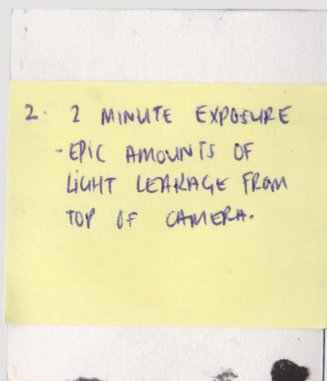 2. 2 MINUTE EXPOSURE
- EPIC AMOUNTS OF
LIGHT LEAKAGE FROM
TOP OF CAMERA.